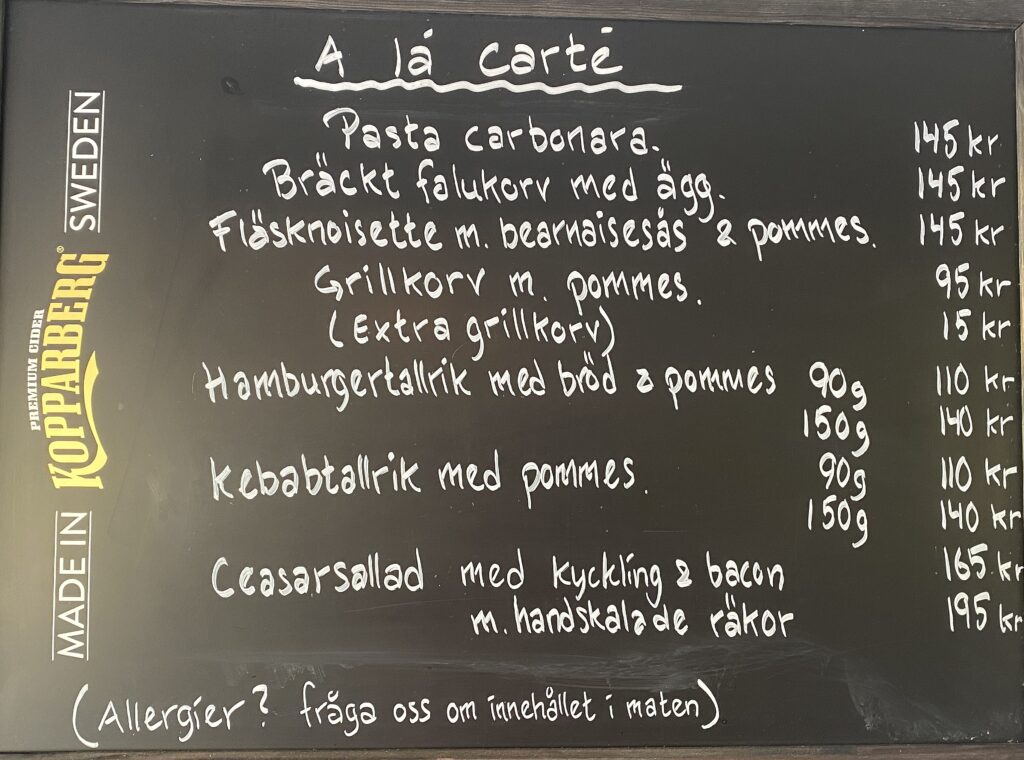 A lá carté
Pasta carbonara. 145 kr
Bräckt falukorv med ägg. 145 kr
Fläsknoisette m. bearnaisesås & pommes. 145 kr
Grillkorv m. pommes. 95 kr
(Extra grillkorv) 15 kr
Hamburgertallrik med bröd & pommes 90g 110 kr
150g 140 kr
Kebabtallrik med pommes. 90g 110 kr
150g 140 kr
Ceasarsallad med kyckling & bacon 165 kr
m. handskalade räkor 195 kr
(Allergier? fråga oss om innehållet i maten)
MADE IN KOPPARBERG® SWEDEN
PREMIUM CIDER